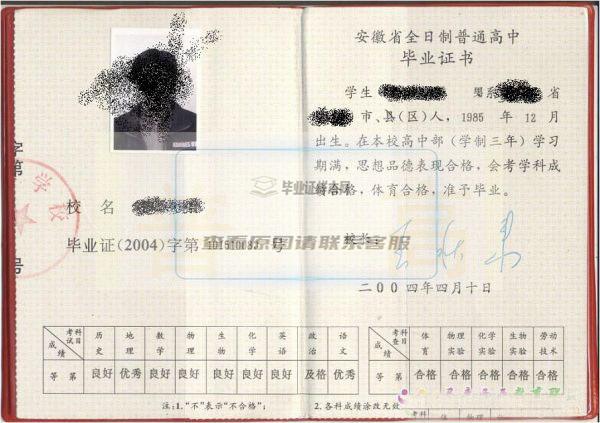 安徽省全日制普通高中
毕业证书
学生
系
省
市、县(区)人，1985 年 12 月
出生。在本校高中部（学制三年）学习
期满，思想品德表现合格，会考学科成
绩合格，体育合格，准予毕业。
校长：
二〇〇四年四月十日
字第
号
学校
校 名
毕业证(2004)字第
号
毕业证样本网
查看原图请联系客服
考试科目 历史 地理 数学 物理 生物 化学 英语 政治 语文
成绩等第 良好 优秀 良好 良好 良好 良好 良好 及格 优秀
考查科目 体育 物理实验 化学实验 生物实验 劳动技术
成绩等第 合格 合格 合格 合格 合格
注:1.“不”表示“不合格”;
2.各科成绩涂改无效